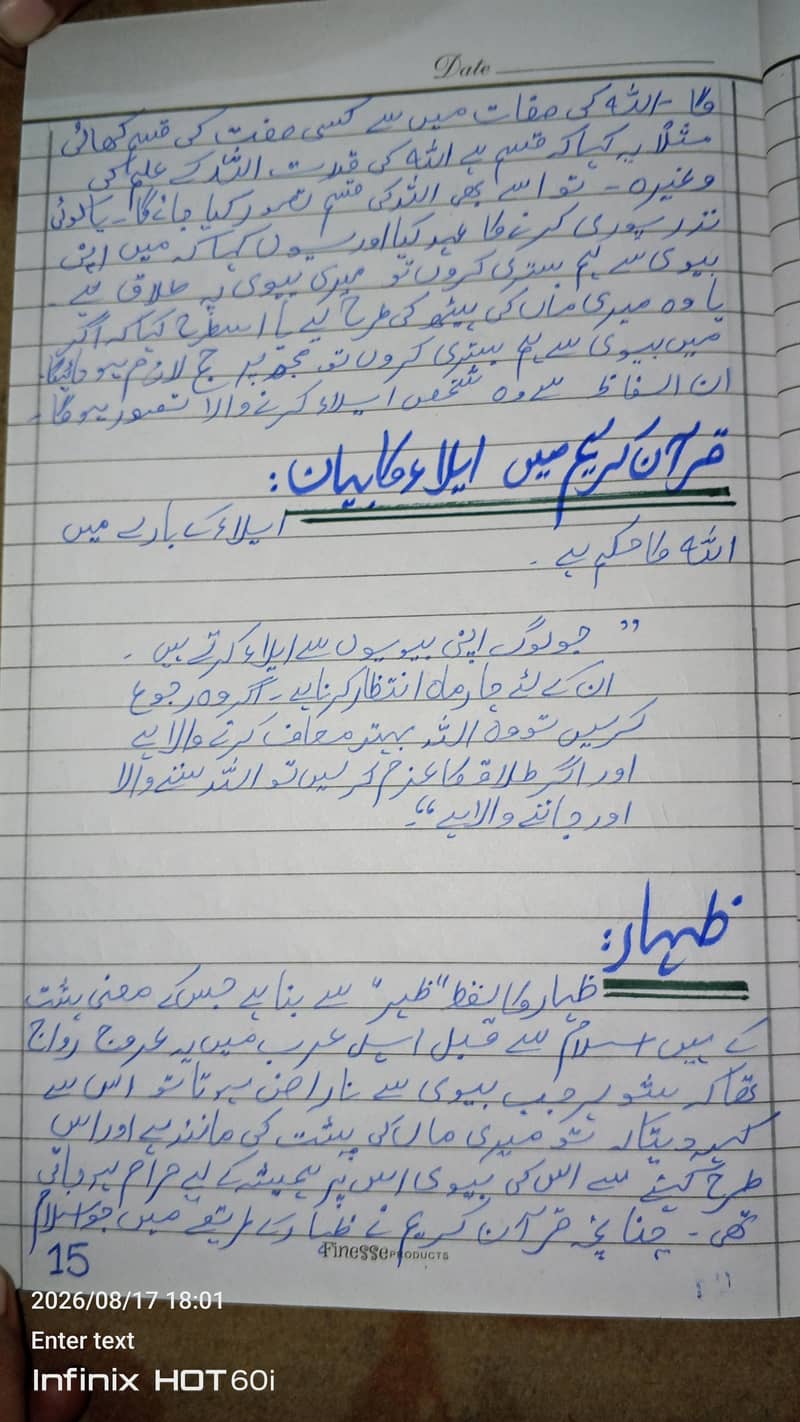 Date
گا۔ اللہ کی صفات میں سے کسی صفت کی قسم کھائی
مثلاً یہ کہا کہ قسم ہے اللہ کی قدرت، اللہ کے علم کی
وغیرہ۔ تو اسے بھی اللہ کی قسم تصور کیا جائے گا۔ یا کوئی
نذر پوری کرنے کا عہد کیا اور یوں کہا کہ میں اپنی
بیوی سے ہم بستری کروں تو میری بیوی پہ طلاق ہے۔
یا وہ میری ماں کی پیٹھ کی طرح ہے یا اسطرح کہا کہ اگر
میں بیوی سے ہم بستری کروں تو مجھ پر حج لازم ہو جائیگا۔
ان الفاظ سے وہ شخص ایلاء کرنے والا تصور ہو گا۔
قرآن کریم میں ایلاء کا بیان:
ایلاء کے بارے میں
اللہ کا حکم ہے۔
”جو لوگ اپنی بیویوں سے ایلاء کرتے ہیں۔
ان کے لئے چار ماہ انتظار کرنا ہے۔ اگر وہ رجوع
کریں تو وہ اللہ بہتر معاف کرنے والا ہے
اور اگر طلاق کا عزم کر لیں تو اللہ سننے والا
اور جاننے والا ہے“۔
ظہار:
ظہار کا لفظ "ظہر" سے بنا ہے جس کے معنی پشت
کے ہیں اسلام سے قبل اہل عرب میں یہ عروج رواج
تھا کہ شوہر جب بیوی سے ناراض ہوتا تو اس سے
کہہ دیتا کہ تو میری ماں کی پشت کی مانند ہے اور اس
طرح کہنے سے اس کی بیوی اس پر ہمیشہ کے لیے حرام ہو جاتی
تھی۔ چنانچہ قرآن کریم نے ظہار کے طریقے میں جو اسلام
15
Finesse PRODUCTS
2026/08/17 18:01
Enter text
Infinix HOT 60i